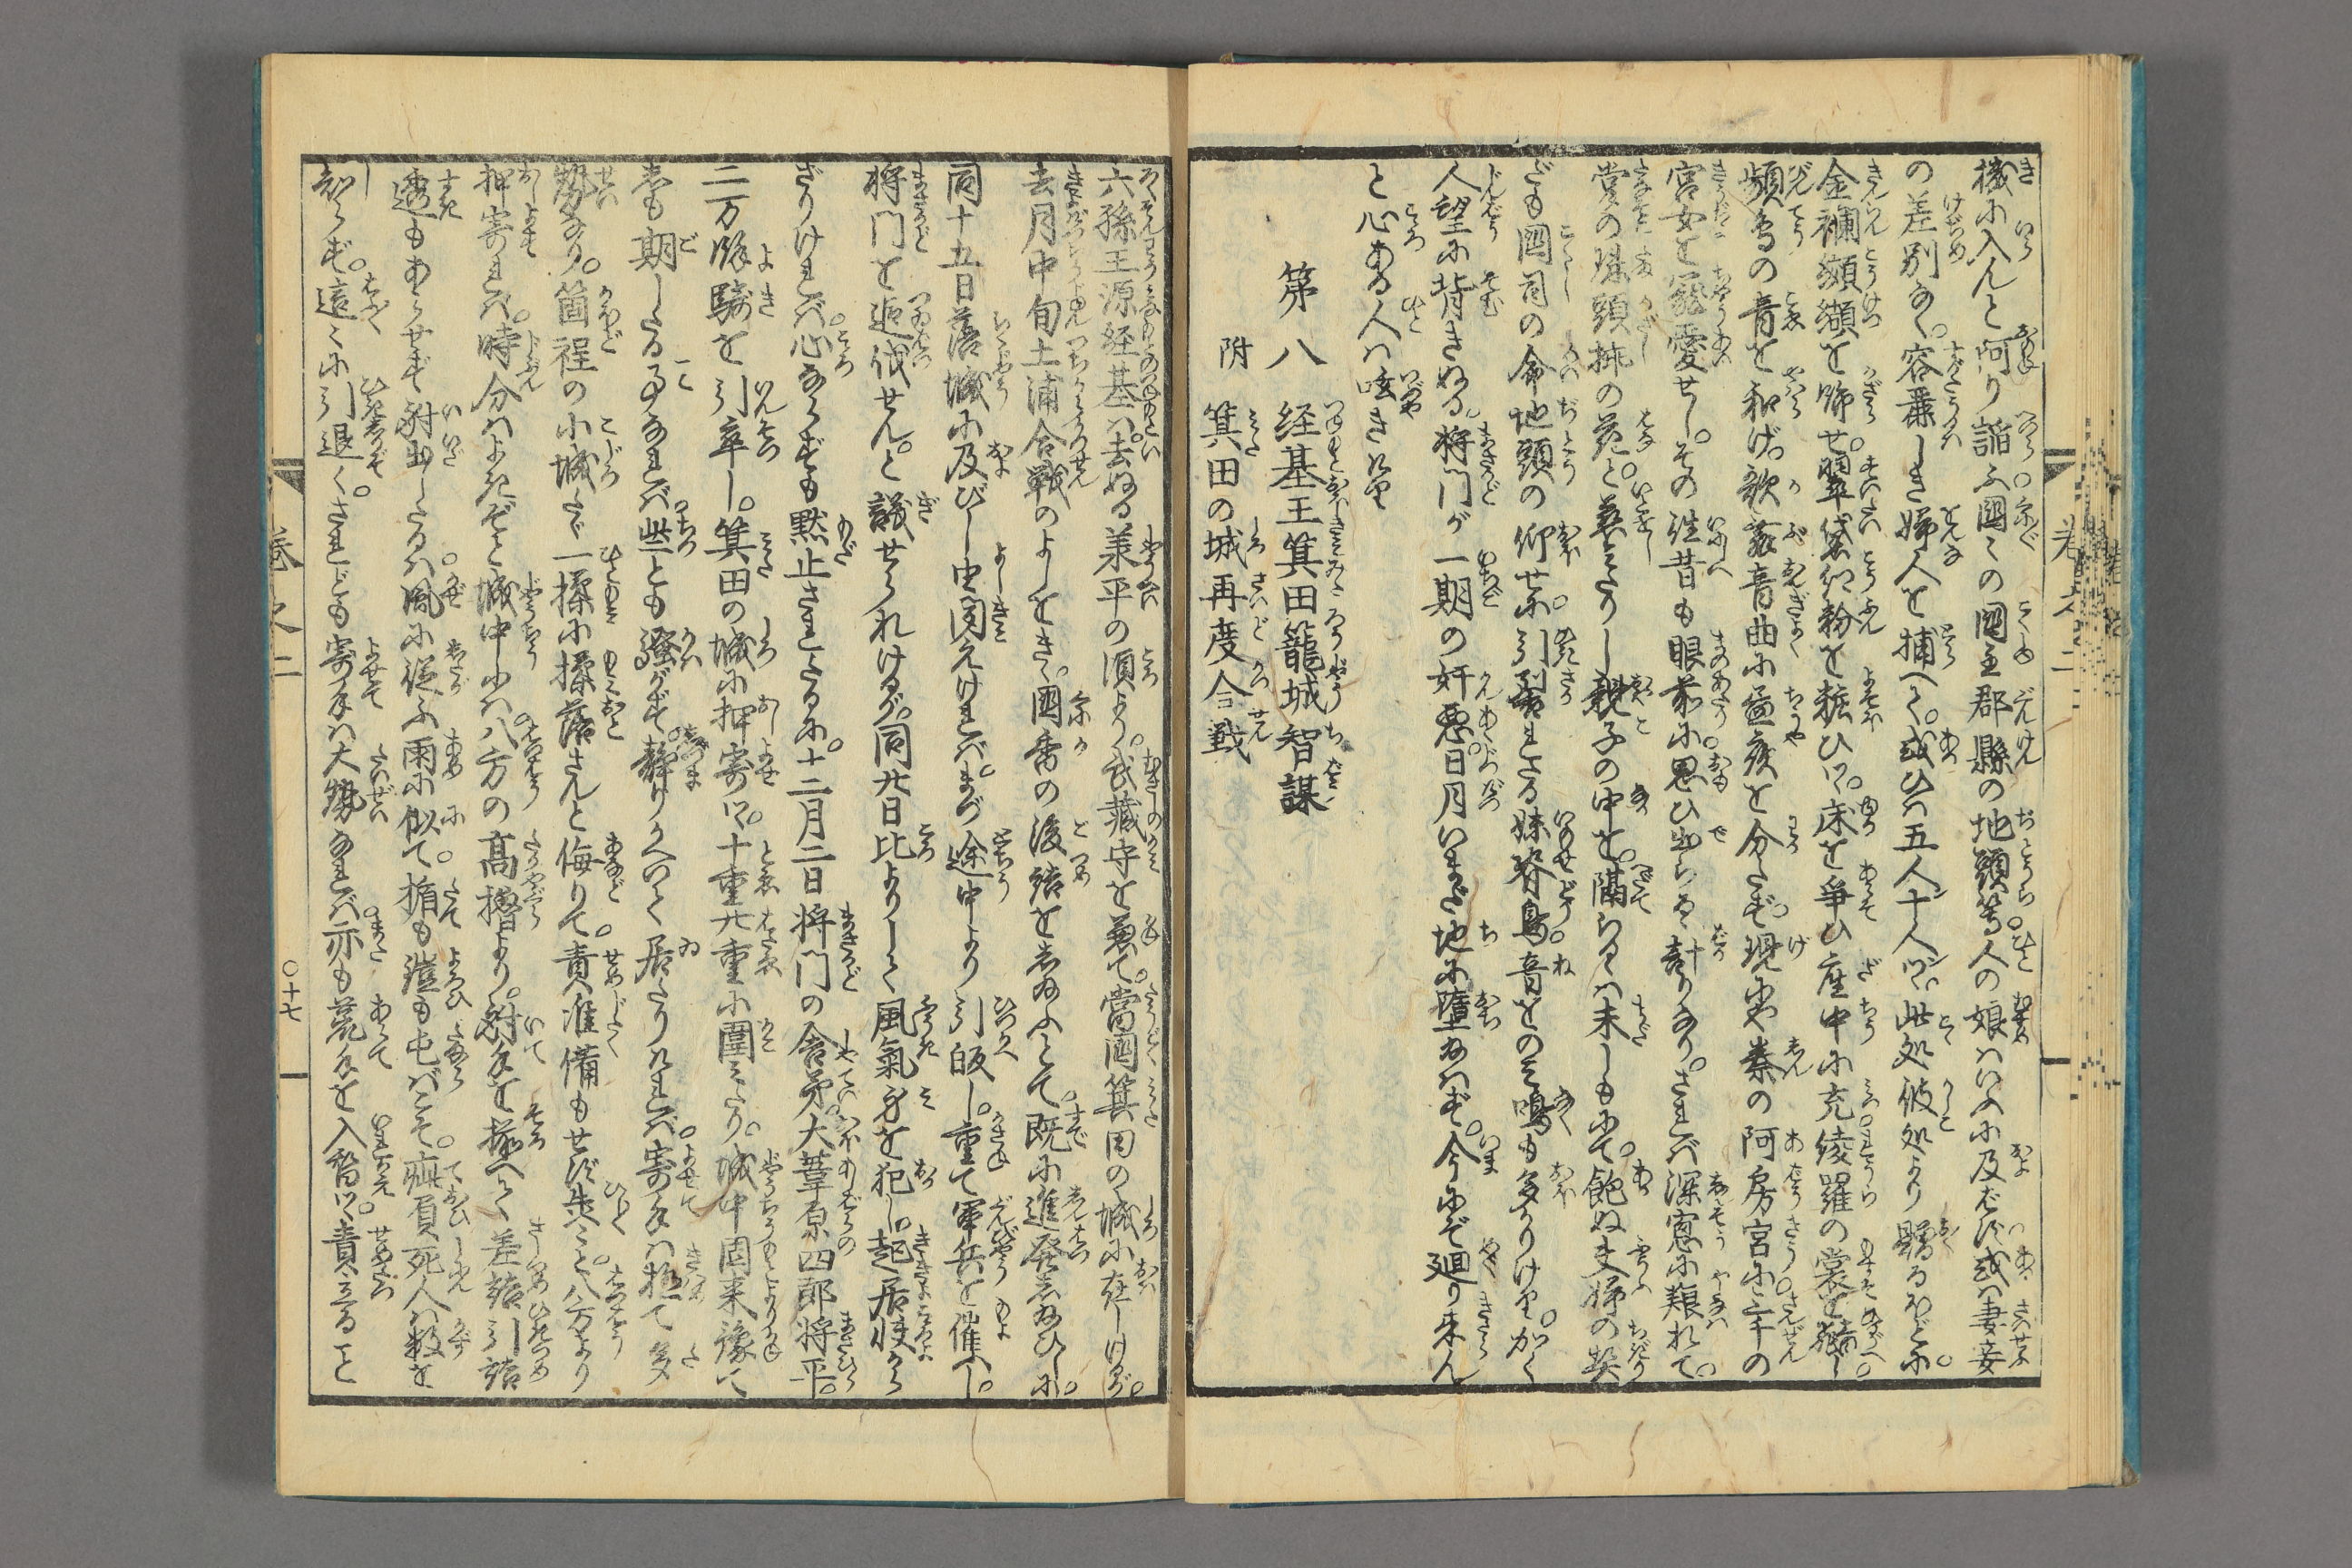 機に入んと阿り諂ふ国々の国主郡縣の地頭等人の娘はいふに及ばず或は妻妾
の差別なく容麗しき婦人を捕へて或ひは五人十人づゝ此処彼処より贈るほどに
金襴纐纈を飾せ翠黛紅粉を粧ひつゝ床を争ひ座中に充綾羅の裳を飜し
頻鳥の音を和げ歌舞音曲に昼夜を分たず現にや秦の阿房宮に三千の
宮女を寵愛せしその徃昔も眼前に思ひ出らるゝ計りなりされバ深窓に艱れて
掌の珠頭挿の花と慈みたりし親子の中を隔らるゝは未しもにて飽ぬ夫婦の契
だも国司の命地頭の仰せに引割れたる妹脊鳥音をのミ鳴も多かりけり加く
人望に背きぬる将門が一期の奸悪日月いまだ地に墮給はず今にぞ廻り来ん
と心ある人は呟きけり
第八 経基王箕田籠城智謀
附 箕田の城再度合戦
六孫王源経基は去ぬる承平の頃より武藏守を兼て當国箕田の城に在しけるが
去月中旬土浦合戦のよしをきゝ国香の後詰を志給ふとて既に進発志給ひしに
同十五日落城に及びし由聞えけれバまづ途中より引皈し重て軍兵を催へし
将門を追伐せんと議せられけるが同廿日比よりして風氣身を犯し起居快から
ざりけれバ心ならずも黙止されたるに十二月二日将門の舎弟大葦原四郎将平
二万餘騎を引率し箕田の城に押寄つゝ十重廿重に圍ミたり城中固来豫て
志も期したる事なれバ些とも騒がず静りかへつて居たりけれバ寄手は極て多
勢なり箇程の小城たゞ一揉に揉落さんと侮りて責准備もせず犇々と八方より
押寄れバ時分はよきぞと城中には八方の高櫓より射手を揃へて差詰引詰
透もあらせず射出したるは風に従ふ雨に似て楯も鎧も屯バこそ痍負死人は数を
知らず這々に引退くされども寄手は大勢なれバ亦も荒手を入替つゝ責立ること
巻之二
○十七